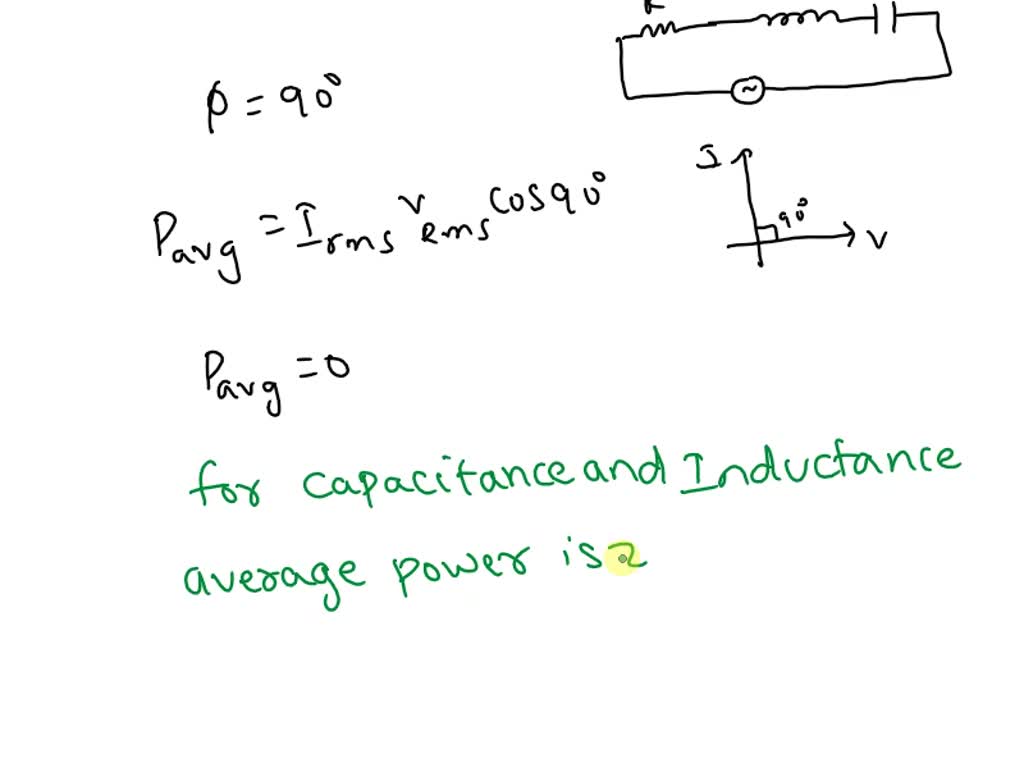 R
~
ϕ = 90°
I
90°
V
Pavg = Irms Vrms cos90°
Pavg = 0
for capacitance and Inductance
average power is